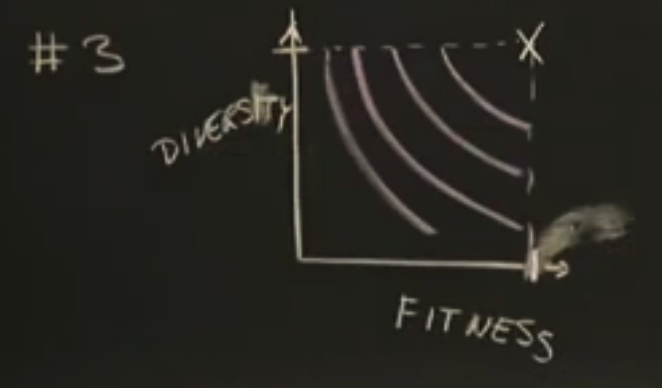 #3
X
DIVERSITY
FITNESS